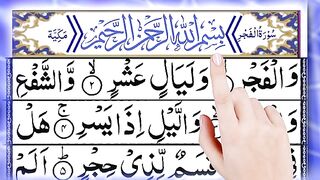 سُوْرَةُ الْفَجْرِ بِسْمِ اللّٰهِ الرَّحْمٰنِ الرَّحِيْمِ مَكِّيَّة
وَالْفَجْرِ ۙ﴿۱﴾ وَلَيَالٍ عَشْرٍ ۙ﴿۲﴾ وَّالشَّفْعِ
وَالَّيْلِ اِذَا يَسْرِ ۚ﴿۴﴾ هَلْ
قَسَمٌ لِّذِيْ حِجْرٍ ﴿۵﴾ اَلَمْ